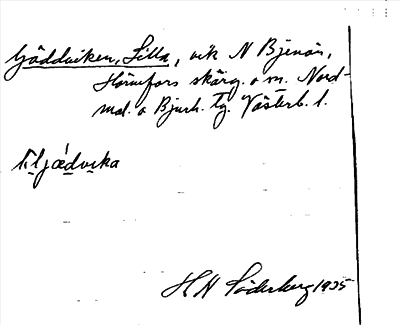 Gäddviken, Lilla, vik N Bjenön,
Hörnefors skärg. o m. Nord-
mal. o Bjurh. tg. Västerb. l.
lìljǽdvɩka
H N Söderberg 1935